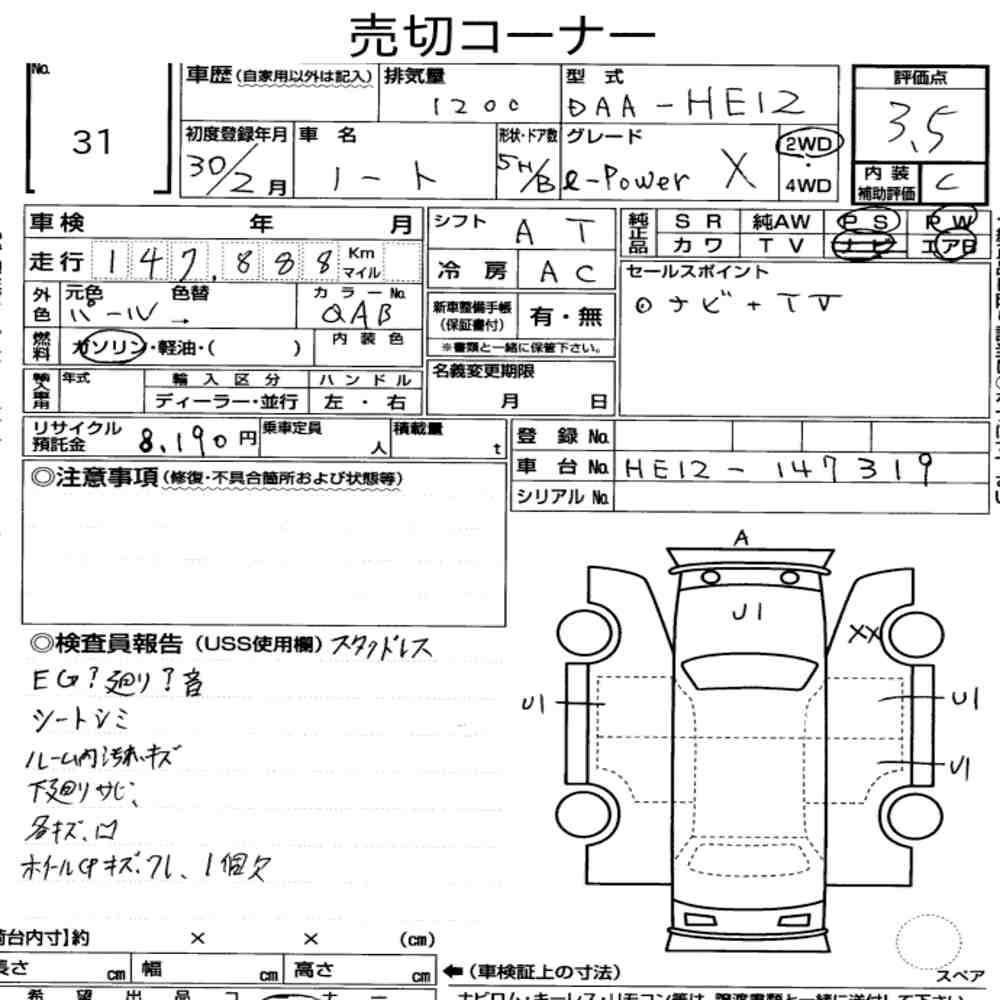 売切コーナー
No. 31
車歴 (自家用以外は記入) 排気量 1200 型式 DAA-HE12 評価点 3.5
初度登録年月 30/2月 車名 ノート 形状・ドア数 5H/B グレード e-Power X 2WD・4WD 内装補助評価 C
車検 年 月 シフト AT 純正品 SR 純AW PS PW
走行 147,888 Km マイル 冷房 AC カワ TV ナビ エアB
外色 元色 パール → 色替 カラーNo. QAB 新車整備手帳 (保証書付) 有・無 セールスポイント
◎ナビ+TV
燃料 ガソリン・軽油・( ) 内装色 ※書類と一緒に保管下さい。
輸入車用 年式 輸入区分 ハンドル 名義変更期限
ディーラー・並行 左・右 月 日
リサイクル預託金 8,190円 乗車定員 人 積載量 t 登録No.
車台No. HE12-147319
◎注意事項 (修復・不具合箇所および状態等) シリアルNo.
A
U1
XX
U1 U1
U1
◎検査員報告 (USS使用欄) スタッドレス
EG?廻り?音
シートシミ
ルーム内汚れ、キズ
下廻りサビ、
各キズ、凹
ホイールCPキズ、フレ、1個欠
荷台内寸】約 × × (cm)
長さ cm 幅 cm 高さ cm ←(車検証上の寸法)
スペア
希望出品コーナー